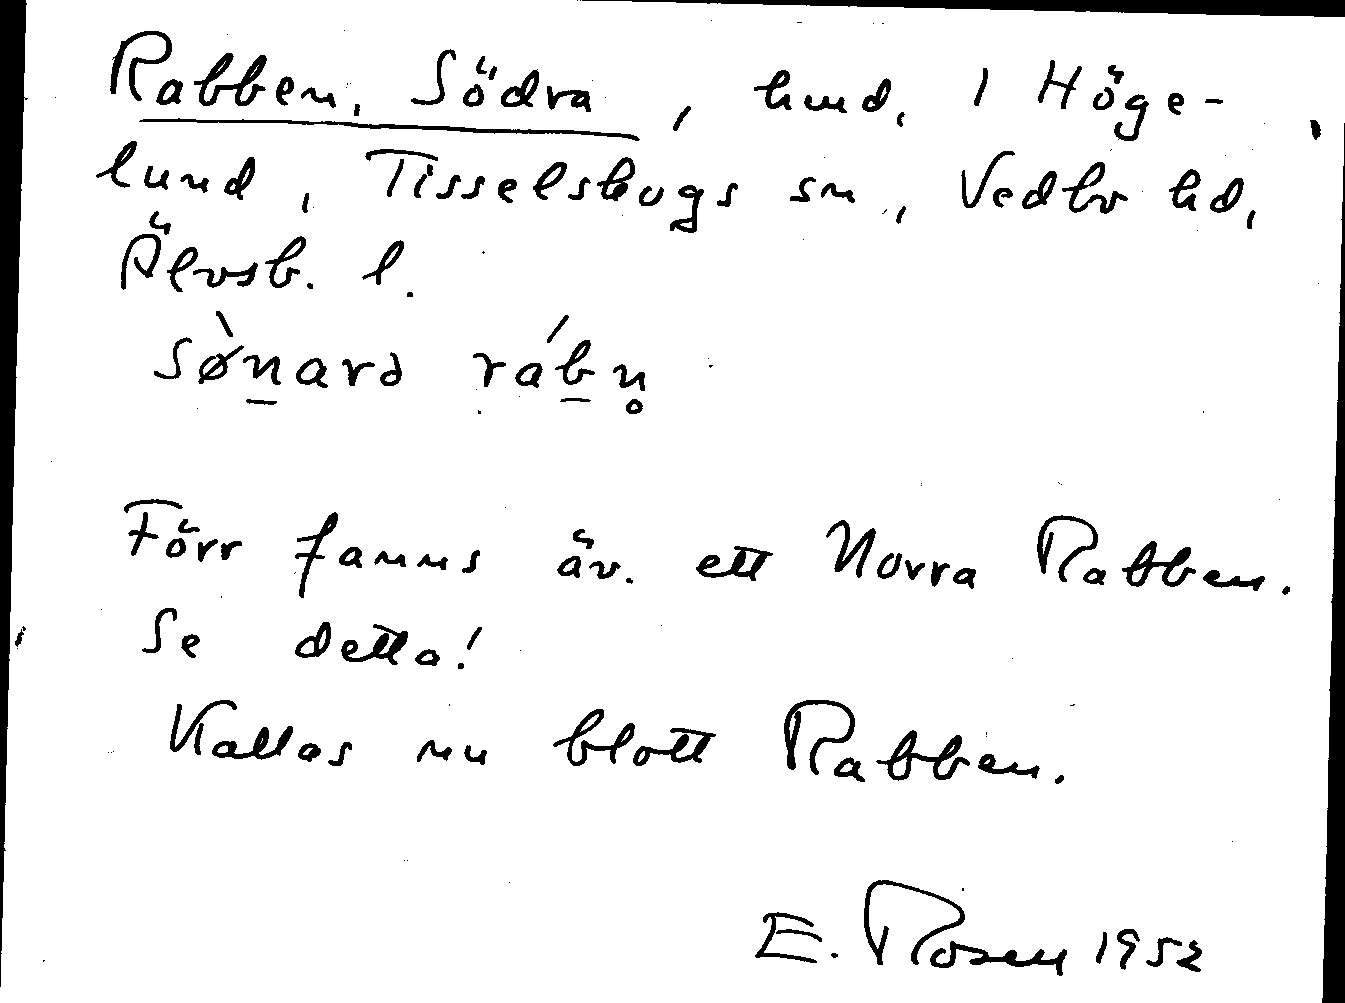 Rabben, Södra, hmd. 1 Höge-
lund, Tisselskogs sn, Vedbo hd,
Älvsb. l.
sø̀n̲ard ráb̲n̥
Förr fanns äv. ett Norra Rabben.
Se detta!
Kallas nu blott Rabben.
E. Rosen 1952